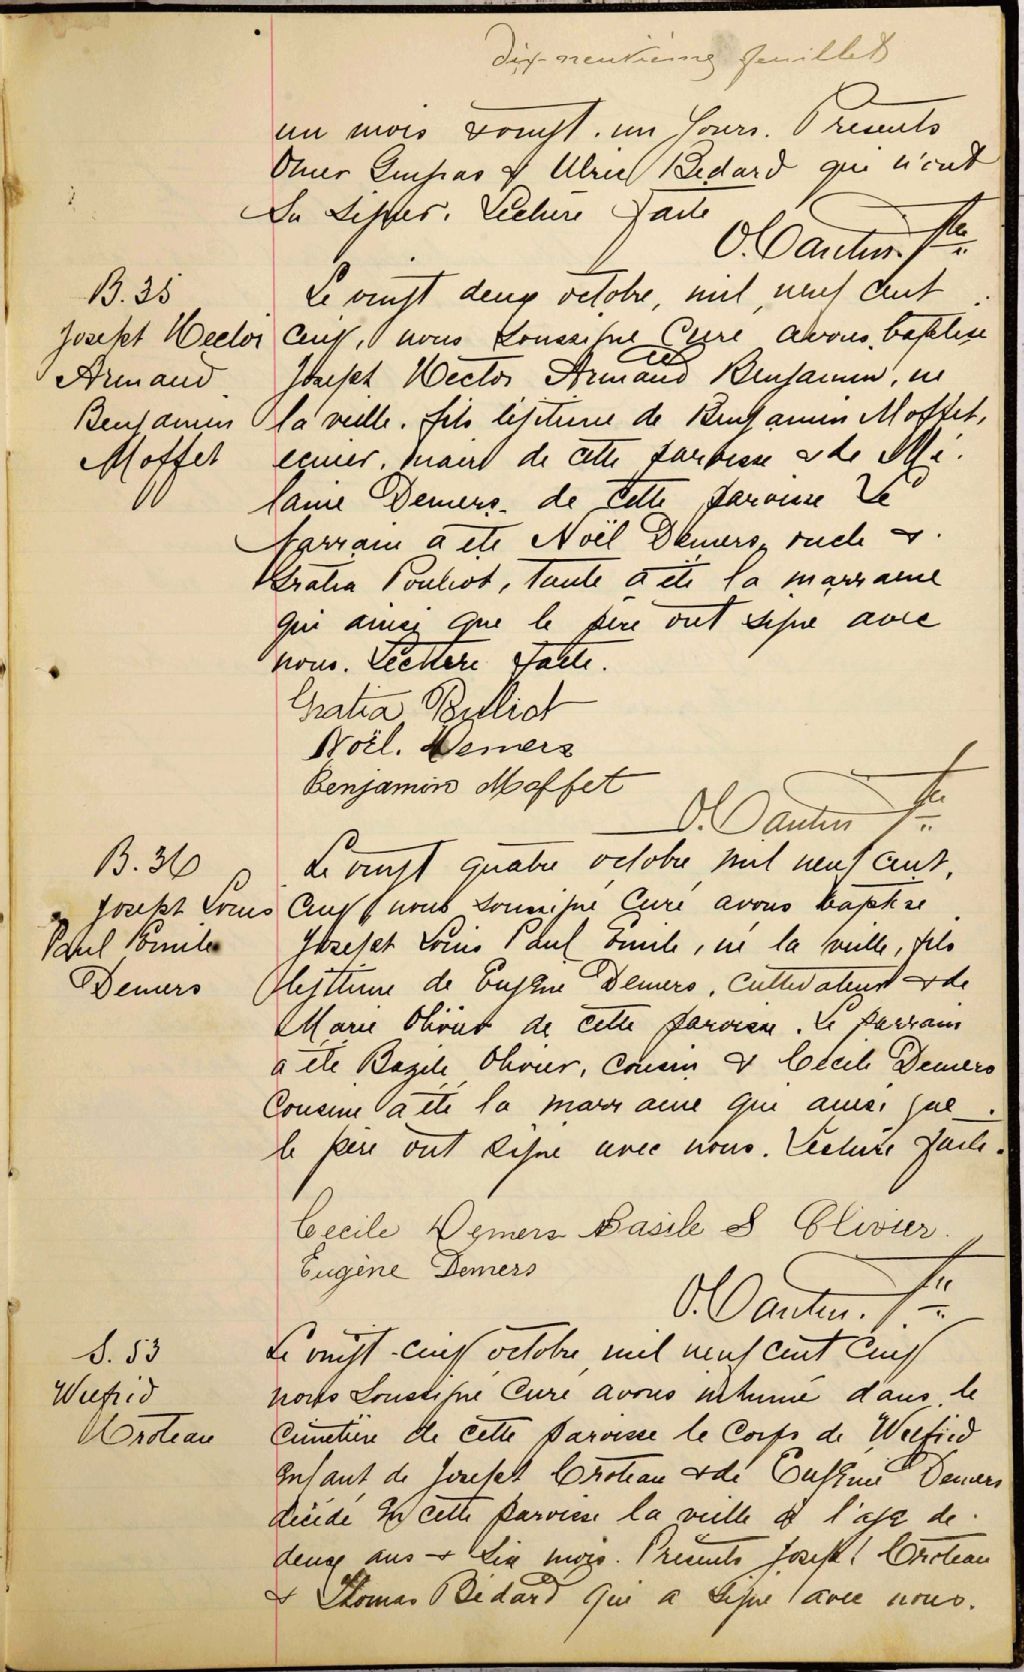 dix-neuvième feuillet
un mois & vingt-un jours. Présents
Omer & Ulric Bedard qui n'ont
su signer. Lecture faite
O. Cantin Ptre
B. 35
Joseph Hector
Armand
Benjamin
Moffet
Le vingt deux octobre, mil neuf cent
cinq, nous soussigné Curé avons baptisé
Joseph Hector Armand Benjamin, né
la veille, fils légitime de Benjamin Moffet,
écuier, maire de cette paroisse & de Mé-
lanie Demers de cette paroisse Le
parrain a été Noël Demers, oncle &
Gratia Pouliot, tante a été la marraine
qui ainsi que le père ont signé avec
nous. Lecture faite.
Gratia Pouliot
Noël. Demers
Benjamin Moffet
O. Cantin Ptre
B. 36
Joseph Louis
Paul Emile
Demers
Le vingt quatre octobre mil neuf cent,
cinq, nous soussigné Curé avons baptisé
Joseph Louis Paul Emile, né la veille, fils
légitime de Eugène Demers, cultivateur & de
Marie Olivier de cette paroisse. Le parrain
a été Bazile Olivier, cousin & Cécile Demers
Cousine a été la marraine qui ainsi que
le père ont signé avec nous. Lecture faite.
Cecile Demers Basile S Olivier.
Eugène Demers
O. Cantin. Ptre
S. 53
Wilfrid
Croteau
Le vingt-cinq octobre mil neuf cent cinq
nous soussigné Curé avons inhumé dans le
cimetière de cette paroisse le corps de Wilfrid
enfant de Joseph Croteau & de Eugénie Demers
décédé en cette paroisse la veille à l'age de
deux ans & six mois. Présents Joseph Croteau
& Thomas Bédard qui a signé avec nous.